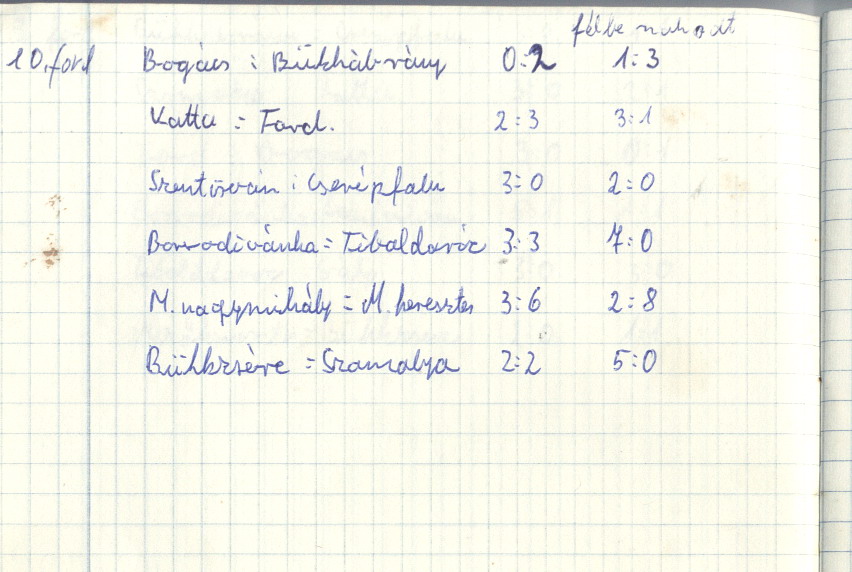 félbe szakadt
10. ford Bogács : Bükkábrány 0:2 1:3
Vatta = Tard. 2:3 3:1
Szentistván : Cserépfalu 3:0 2:0
Borsodivánka = Tibolddaróc 3:3 7:0
M. nagymihály = M. keresztes 3:6 2:8
Bükkzsérc = Szomolya 2:2 5:0